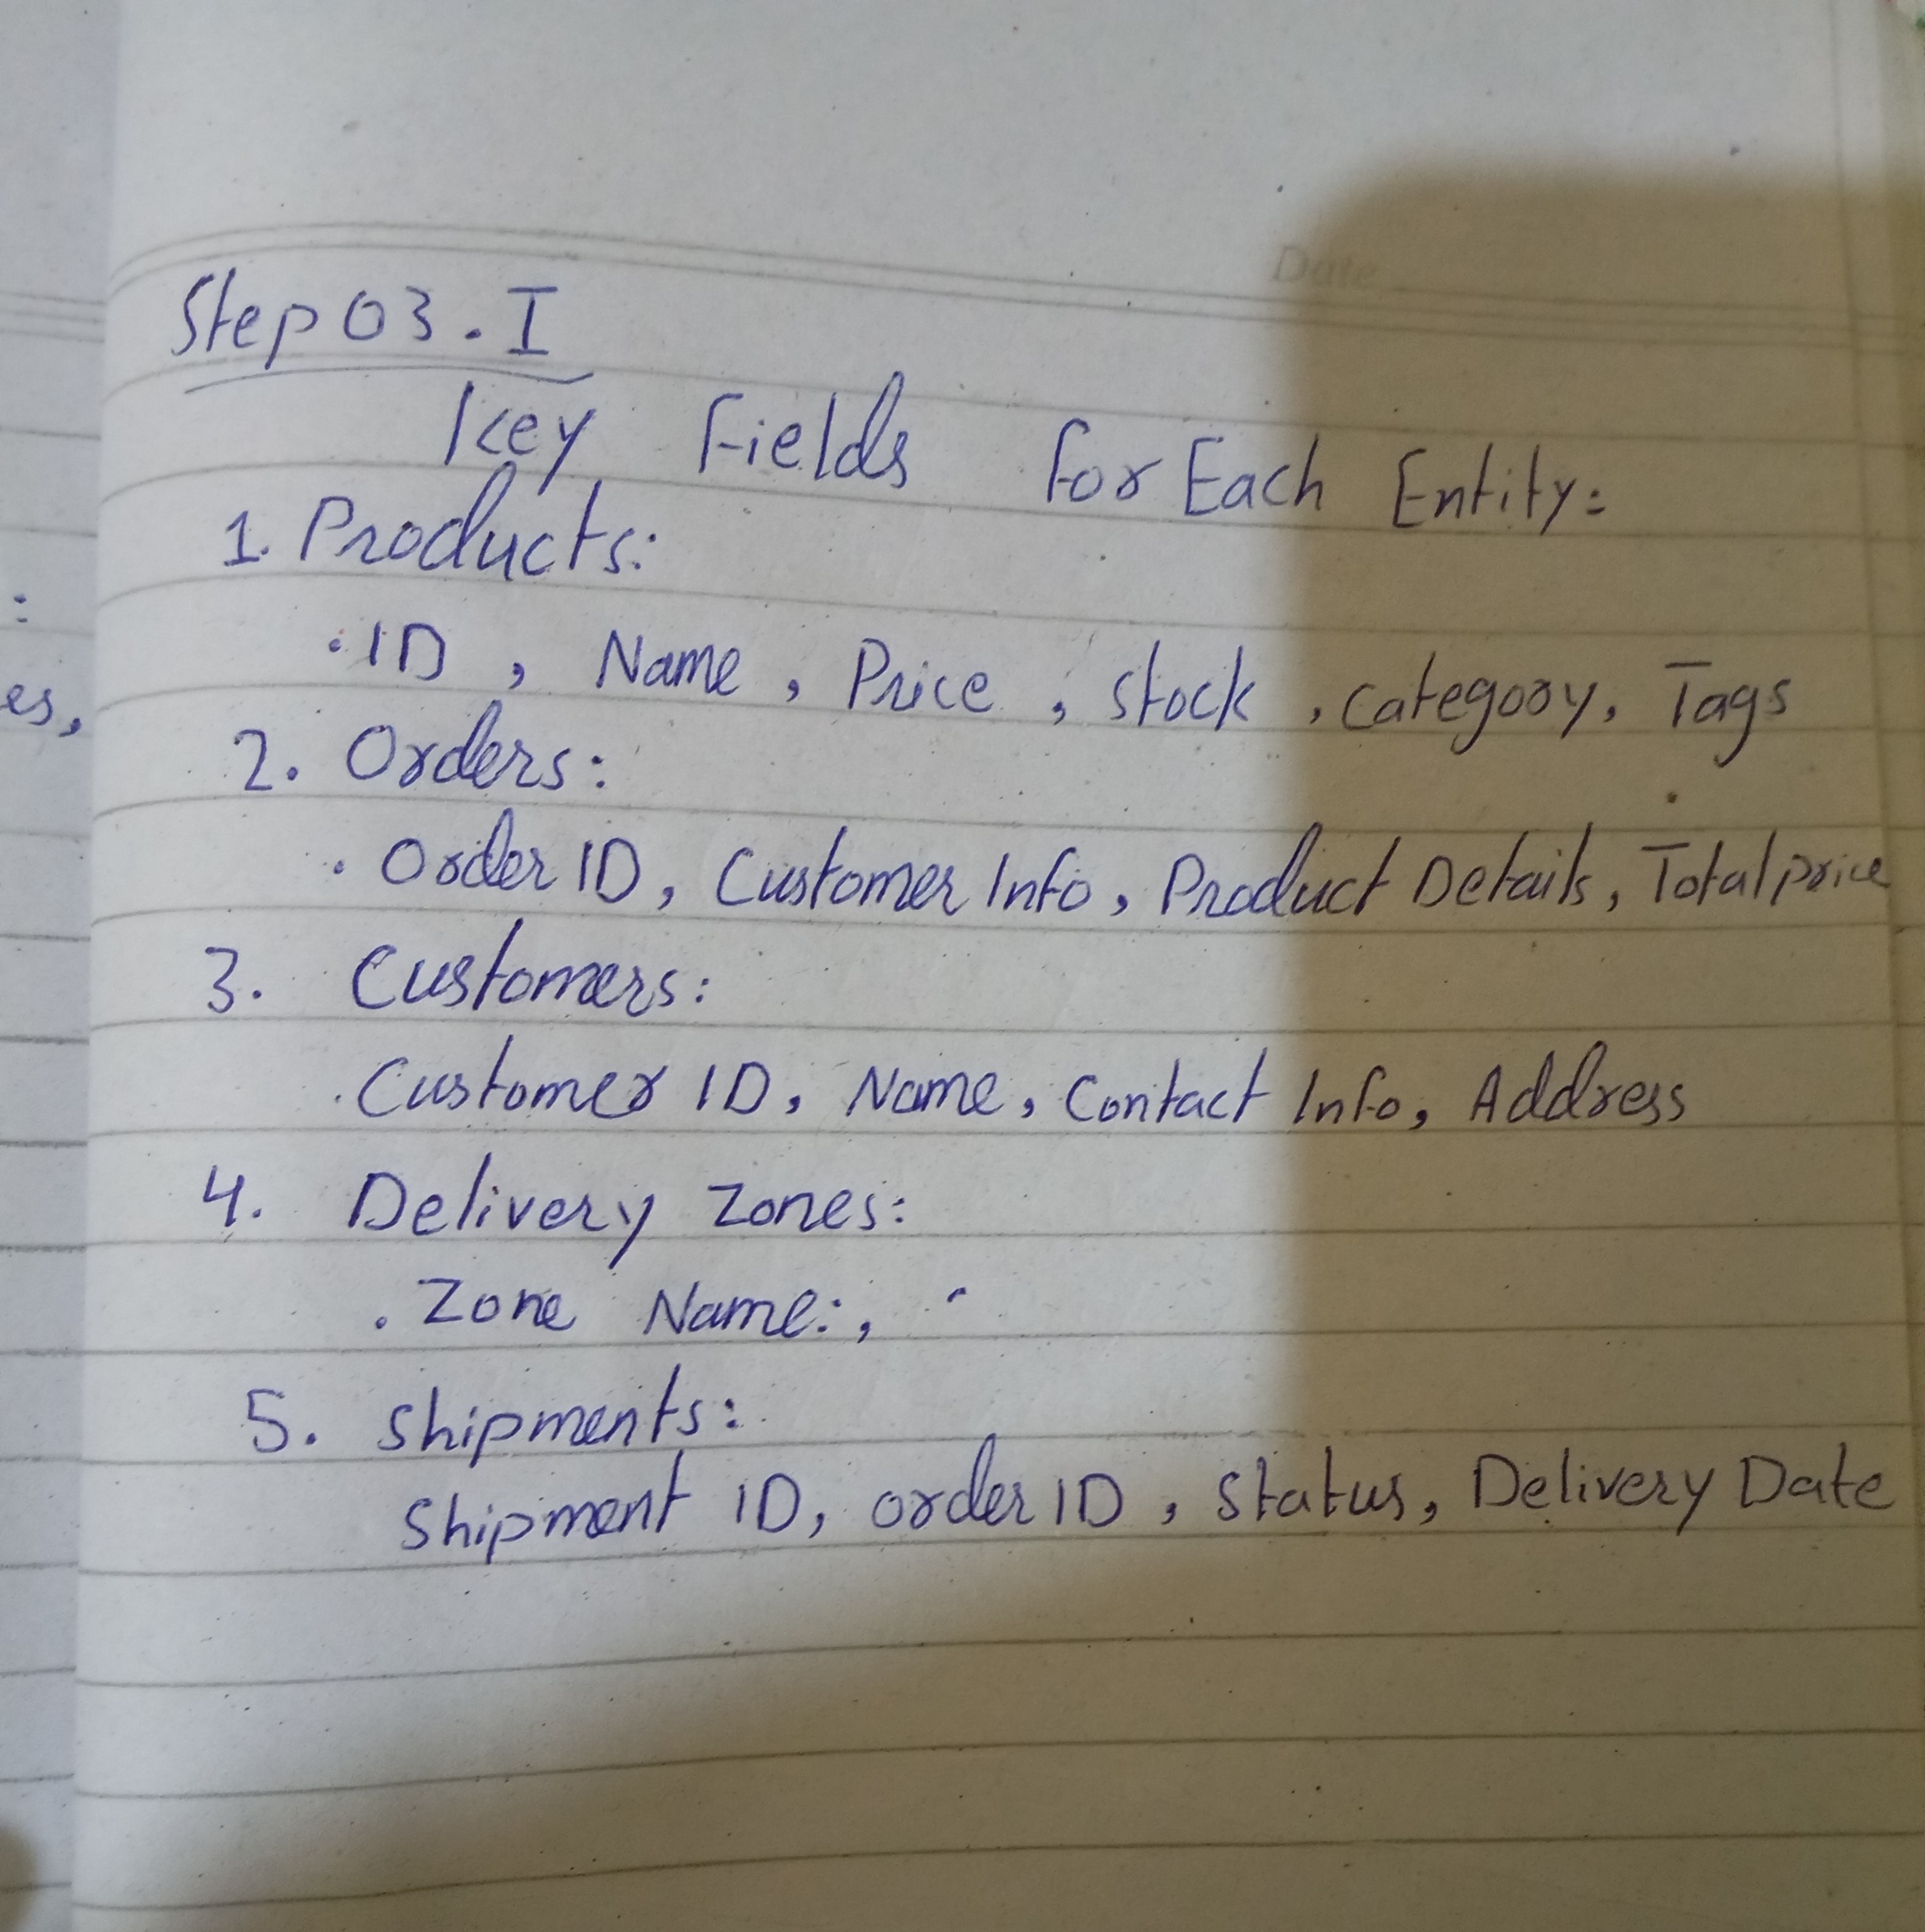 Date
Step 03. I
Key Fields for Each Entity:
1. Products:
. ID, Name, Price, Stock, Category, Tags
2. Orders:
. Order ID, Customer Info, Product Details, Total price
3. Customers:
. Customer ID, Name, Contact Info, Address
4. Delivery Zones:
. Zone Name:,
5. Shipments:
Shipment ID, order ID, Status, Delivery Date
:
es,